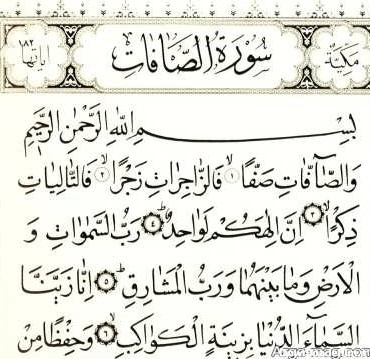 مكية سورة الصافات آياتها ١٨٢
بِسْمِ اللّٰهِ الرَّحْمٰنِ الرَّحِيمِ
وَالصَّآفَّاتِ صَفًّا ١ فَالزَّاجِرَاتِ زَجْرًا ٢ فَالتَّالِيَاتِ
ذِكْرًا ٣ اِنَّ اِلٰهَكُمْ لَوَاحِدٌ ٤ رَبُّ السَّمٰوَاتِ وَ
الْاَرْضِ وَمَا بَيْنَهُمَا وَرَبُّ الْمَشَارِقِ ٥ اِنَّا زَيَّنَّا
السَّمَآءَ الدُّنْيَا بِزِينَةٍ الْكَوَاكِبِ ٦ وَحِفْظًا مِنْ